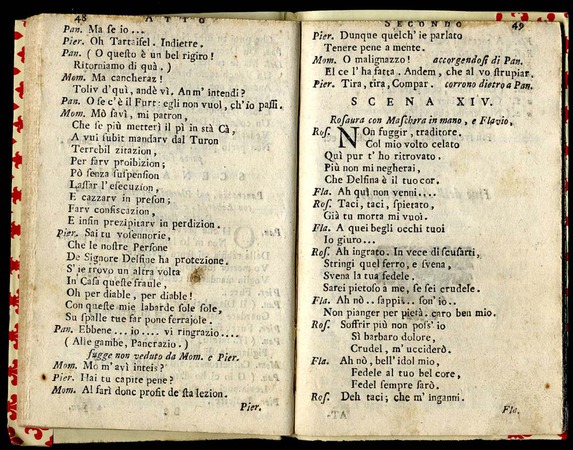 48 ATTO
Pan. Ma se io...
Pier. Oh Tartaifel. Indietre.
Pan. ( O questo è un bel rigiro!
Ritorniamo di quà. )
Mom. Ma cancheraz!
Toliv d'quì, andè vì, An m' intendì?
Pan. O se c'è il Furt: egli non vuol, ch'io passi.
Mom. Mò savì, mi patron,
Che se più metterì il pì in stà Cà,
A vui subit mandarv dal Turon
Terrebil zitazion,
Per farv proibizion;
Pò senza suspension
Lassar l'esecuzion,
E cazzarv in preson;
Farv confiscazion,
E infin prezipitarv in perdizion.
Pier. Sai tu vossennorie,
Che le nostre Persone
De Signore Delfine ha protezione.
S'ie trovo un altra volta
In Casa queste fraule,
Oh per diable, per diable!
Con queste mie labarde sole sole,
Su spalle tue far pone ferrajole.
Pan. Ebbene... io .... vi ringrazio....
( Alle gambe, Pancrazio. )
fugge non veduto da Mom. e Pier.
Mom. Mo m'avì inteis?
Pier. Hai tu capite pene?
Mom. Al farò donc profit de sta lezion.
Pier.
SECONDO 49
Pier. Dunque quelch' ie parlato
Tenere pene a mente.
Mom. O malignazzo! accorgendosi di Pan.
El ce l' ha fatta. Andem, che al vo strupiar.
Pier. Tira, tira, Compar. corrono dietro a Pan.
SCENA XIV.
Rosaura con Maschera in mano, e Flavio.
Ros. NOn fuggir, traditore.
Col mio volto celato
Quì pur t' ho ritrovato.
Più non mi negherai,
Che Delfina è il tuo cor.
Fla. Ah quì non venni....
Ros. Taci, taci, spietato,
Già tu morta mi vuoi.
Fla. A quei begli occhi tuoi
Io giuro...
Ros. Ah ingrato. In vece di scusarti,
Stringi quel ferro, e svena,
Svena la tua fedele.
Sarei pietoso a me, se sei crudele.
Fla. Ah nò.. sappi... son' io..
Non pianger per pietà, caro ben mio.
Ros. Soffrir più non poss' io
Sì barbaro dolore,
Crudel, m' ucciderò.
Fla. Ah nò, bell' idol mio,
Fedele al tuo bel core,
Fedel sempre sarò.
Ros. Deh taci; che m' inganni.
Fla.